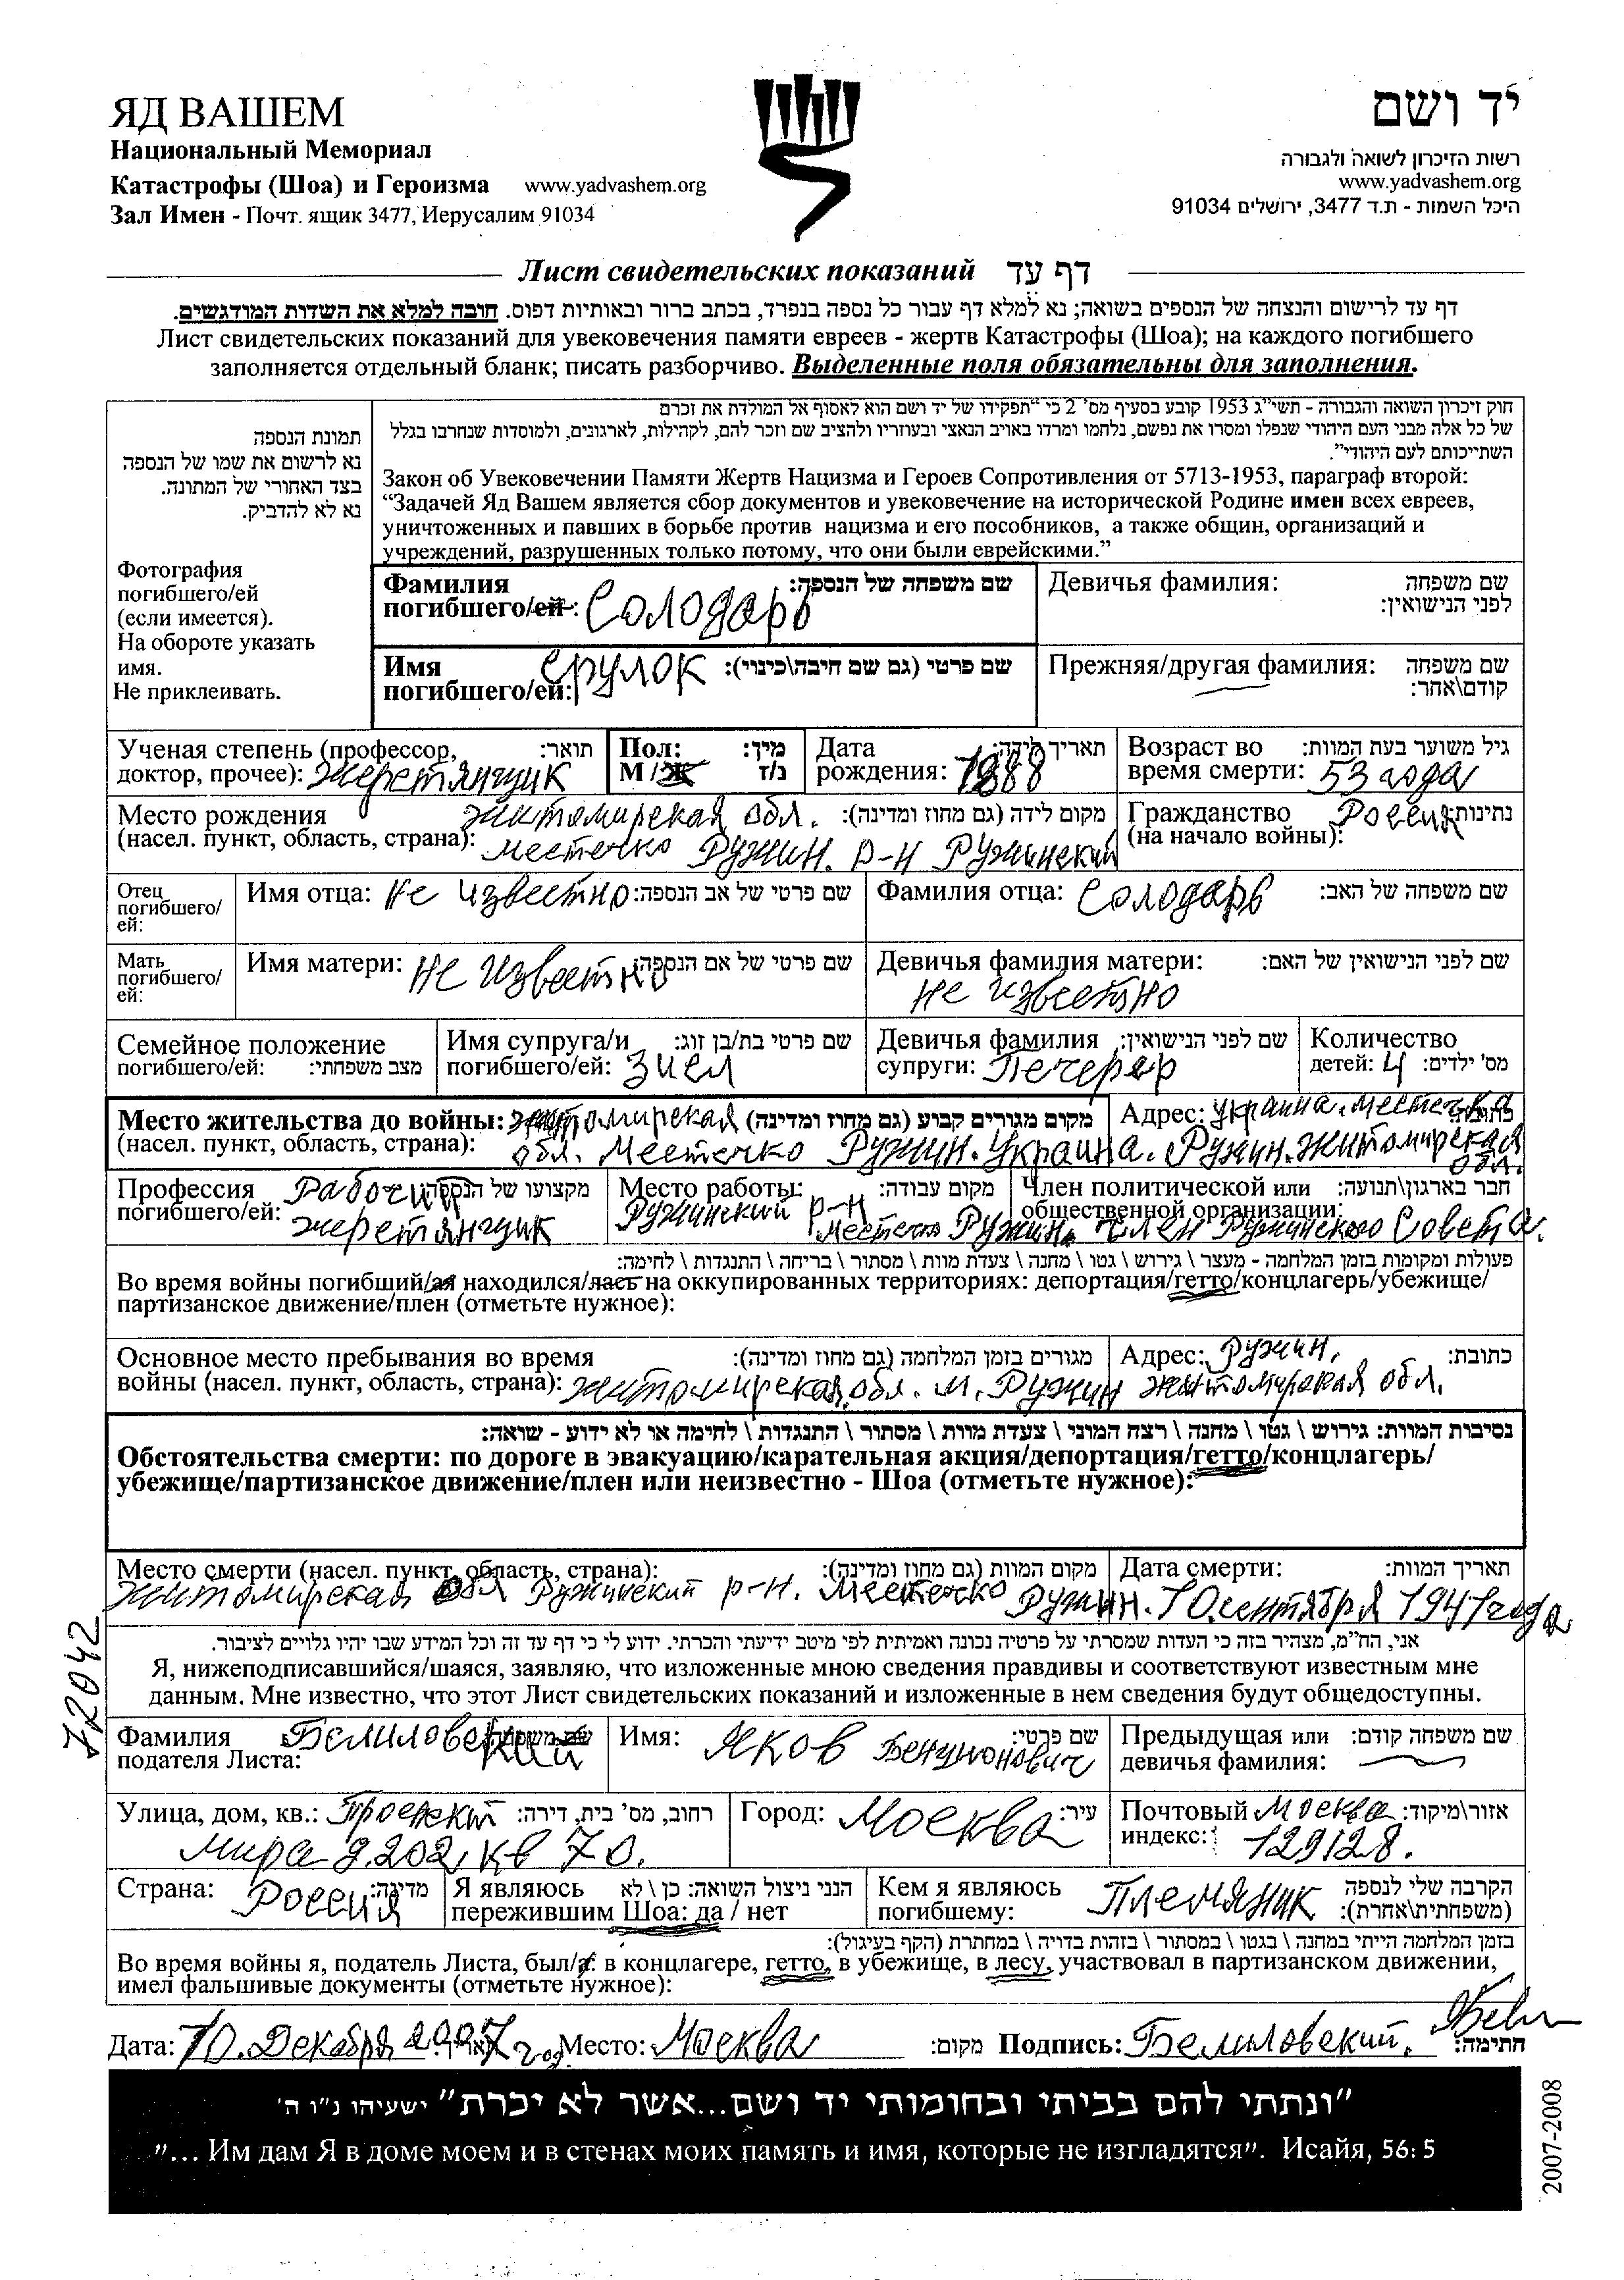 ЯД ВАШЕМ
Национальный Мемориал
Катастрофы (Шоа) и Героизма www.yadvashem.org
Зал Имен - Почт. ящик 3477, Иерусалим 91034
יד ושם
רשות הזיכרון לשואה ולגבורה
www.yadvashem.org
היכל השמות - ת.ד 3477, ירושלים 91034
Лист свидетельских показаний דף עד
דף עד לרישום והנצחה של הנספים בשואה; נא למלא דף עבור כל נספה בנפרד, בכתב ברור ובאותיות דפוס. חובה למלא את השדות המודגשים.
Лист свидетельских показаний для увековечения памяти евреев - жертв Катастрофы (Шоа); на каждого погибшего
заполняется отдельный бланк; писать разборчиво. Выделенные поля обязательны для заполнения.
תמונת הנספה
נא לרשום את שמו של הנספה
בצד האחורי של המתונה.
נא לא להדביק.
Фотография
погибшего/ей
(если имеется).
На обороте указать
имя.
Не приклеивать.
חוק זיכרון השואה והגבורה - תשי"ג 1953 קובע בסעיף מס' 2 כי "תפקידו של יד ושם הוא לאסוף אל המולדת את זכרם
של כל אלה מבני העם היהודי שנפלו ומסרו את נפשם, נלחמו ומרדו באויב הנאצי ובעוזריו ולהציב שם וזכר להם, לקהילות, לארגונים, ולמוסדות שנחרבו בגלל
השתייכותם לעם היהודי".
Закон об Увековечении Памяти Жертв Нацизма и Героев Сопротивления от 5713-1953, параграф второй:
“Задачей Яд Вашем является сбор документов и увековечение на исторической Родине имен всех евреев,
уничтоженных и павших в борьбе против нацизма и его пособников, а также общин, организаций и
учреждений, разрушенных только потому, что они были еврейскими.”
Фамилия שם משפחה של הנספה:
погибшего/ей: Солодарь
Девичья фамилия: שם משפחה
לפני הנישואין:
Имя Срулок שם פרטי (גם שם חיבה\כינוי):
погибшего/ей:
Прежняя/другая фамилия: שם משפחה
קודם\אחר:
Ученая степень (профессор, תואר:
доктор, прочее): жерстянщик
Пол: מין:
М / Ж נ/ז
Дата תאריך לידה:
рождения: 1888
Возраст во גיל משוער בעת המוות:
время смерти: 53 года
Место рождения Житомирская обл. מקום לידה (גם מחוז ומדינה):
(насел. пункт, область, страна): местечко Ружин. р-н Ружинский
Гражданство Россия נתינות:
(на начало войны):
Отец
погибшего/
ей:
Имя отца: не известно שם פרטי של אב הנספה:
Фамилия отца: Солодарь שם משפחה של האב:
Мать
погибшего/
ей:
Имя матери: не известно שם פרטי של אם הנספה:
Девичья фамилия матери: שם לפני הנישואין של האם:
не известно
Семейное положение
погибшего/ей: מצב משפחתי:
Имя супруга/и שם פרטי בת/בן זוג:
погибшего/ей: Зисл
Девичья фамилия שם לפני הנישואין:
супруги: Печерер
Количество
детей: 4 מס' ילדים:
Место жительства до войны: житомирская מקום מגורים קבוע (גם מחוז ומדינה)
(насел. пункт, область, страна): обл. Местечко Ружин. Украина.
Адрес: украина. местечко כתובת:
Ружин. Житомирская
обл.
Профессия Рабочий מקצועו של הנספה:
погибшего/ей: жерстянщик
Место работы: מקום עבודה:
Ружинский р-н
местечко Ружин.
Член политической или חבר בארגון\תנועה:
общественной организации:
член Ружинского Совета.
פעולות ומקומות בזמן המלחמה - מעצר \ גירוש \ גטו \ מחנה \ צעדת מוות \ מסתור \ בריחה \ התנגדות \ לחימה:
Во время войны погибший/ая находился/лась на оккупированных территориях: депортация/гетто/концлагерь/убежище/
партизанское движение/плен (отметьте нужное):
Основное место пребывания во время מגורים בזמן המלחמה (גם מחוז ומדינה):
войны (насел. пункт, область, страна): житомирская обл. м. Ружин
Адрес: Ружин, כתובת:
житомирская обл.
נסיבות המוות: גירוש \ גטו \ מחנה \ רצח המוני \ צעדת מוות \ מסתור \ התנגדות \ לחימה או לא ידוע - שואה:
Обстоятельства смерти: по дороге в эвакуацию/карательная акция/депортация/гетто/концлагерь/
убежище/партизанское движение/плен или неизвестно - Шоа (отметьте нужное):
Место смерти (насел. пункт, область, страна): מקום המוות (גם מחוז ומדינה):
Житомирская обл Ружинский р-н. Местечко Ружин.
Дата смерти: תאריך המוות:
10. сентября 1941 года
72042
אני, הח"מ, מצהיר בזה כי העדות שמסרתי על פרטיה נכונה ואמיתית לפי מיטב ידיעתי והכרתי. ידוע לי כי דף עד זה וכל המידע שבו יהיו גלויים לציבור.
Я, нижеподписавшийся/шаяся, заявляю, что изложенные мною сведения правдивы и соответствуют известным мне
данным. Мне известно, что этот Лист свидетельских показаний и изложенные в нем сведения будут общедоступны.
Фамилия Белиловский שם משפחה:
подателя Листа:
Имя: Яков Бенционович שם פרטי:
Предыдущая или שם משפחה קודם:
девичья фамилия:
Улица, дом, кв.: Проспект רחוב, מס' בית, דירה:
мира д.202, кв 70.
Город: Москва עיר:
Почтовый Москва אזור\מיקוד:
индекс: 129128.
Страна: Россия מדינה:
Я являюсь הנני ניצול השואה: כן \ לא
пережившим Шоа: да / нет
Кем я являюсь Племяник הקרבה שלי לנספה
погибшему: (משפחתית\אחרת):
בזמן המלחמה הייתי במחנה \ בגטו \ במסתור \ בזהות בדויה \ במחתרת (הקף בעיגול):
Во время войны я, податель Листа, был/а: в концлагере, гетто, в убежище, в лесу, участвовал в партизанском движении,
имел фальшивые документы (отметьте нужное):
Дата: 10. Декабря 2007 год תאריך: Место: Москва מקום: Подпись: Белиловский. חתימה:
"ונתתי להם בביתי ובחומותי יד ושם...אשר לא יכרת" ישעיהו נ"ו ה'
”... Им дам Я в доме моем и в стенах моих память и имя, которые не изгладятся”. Исайя, 56: 5
2007-2008